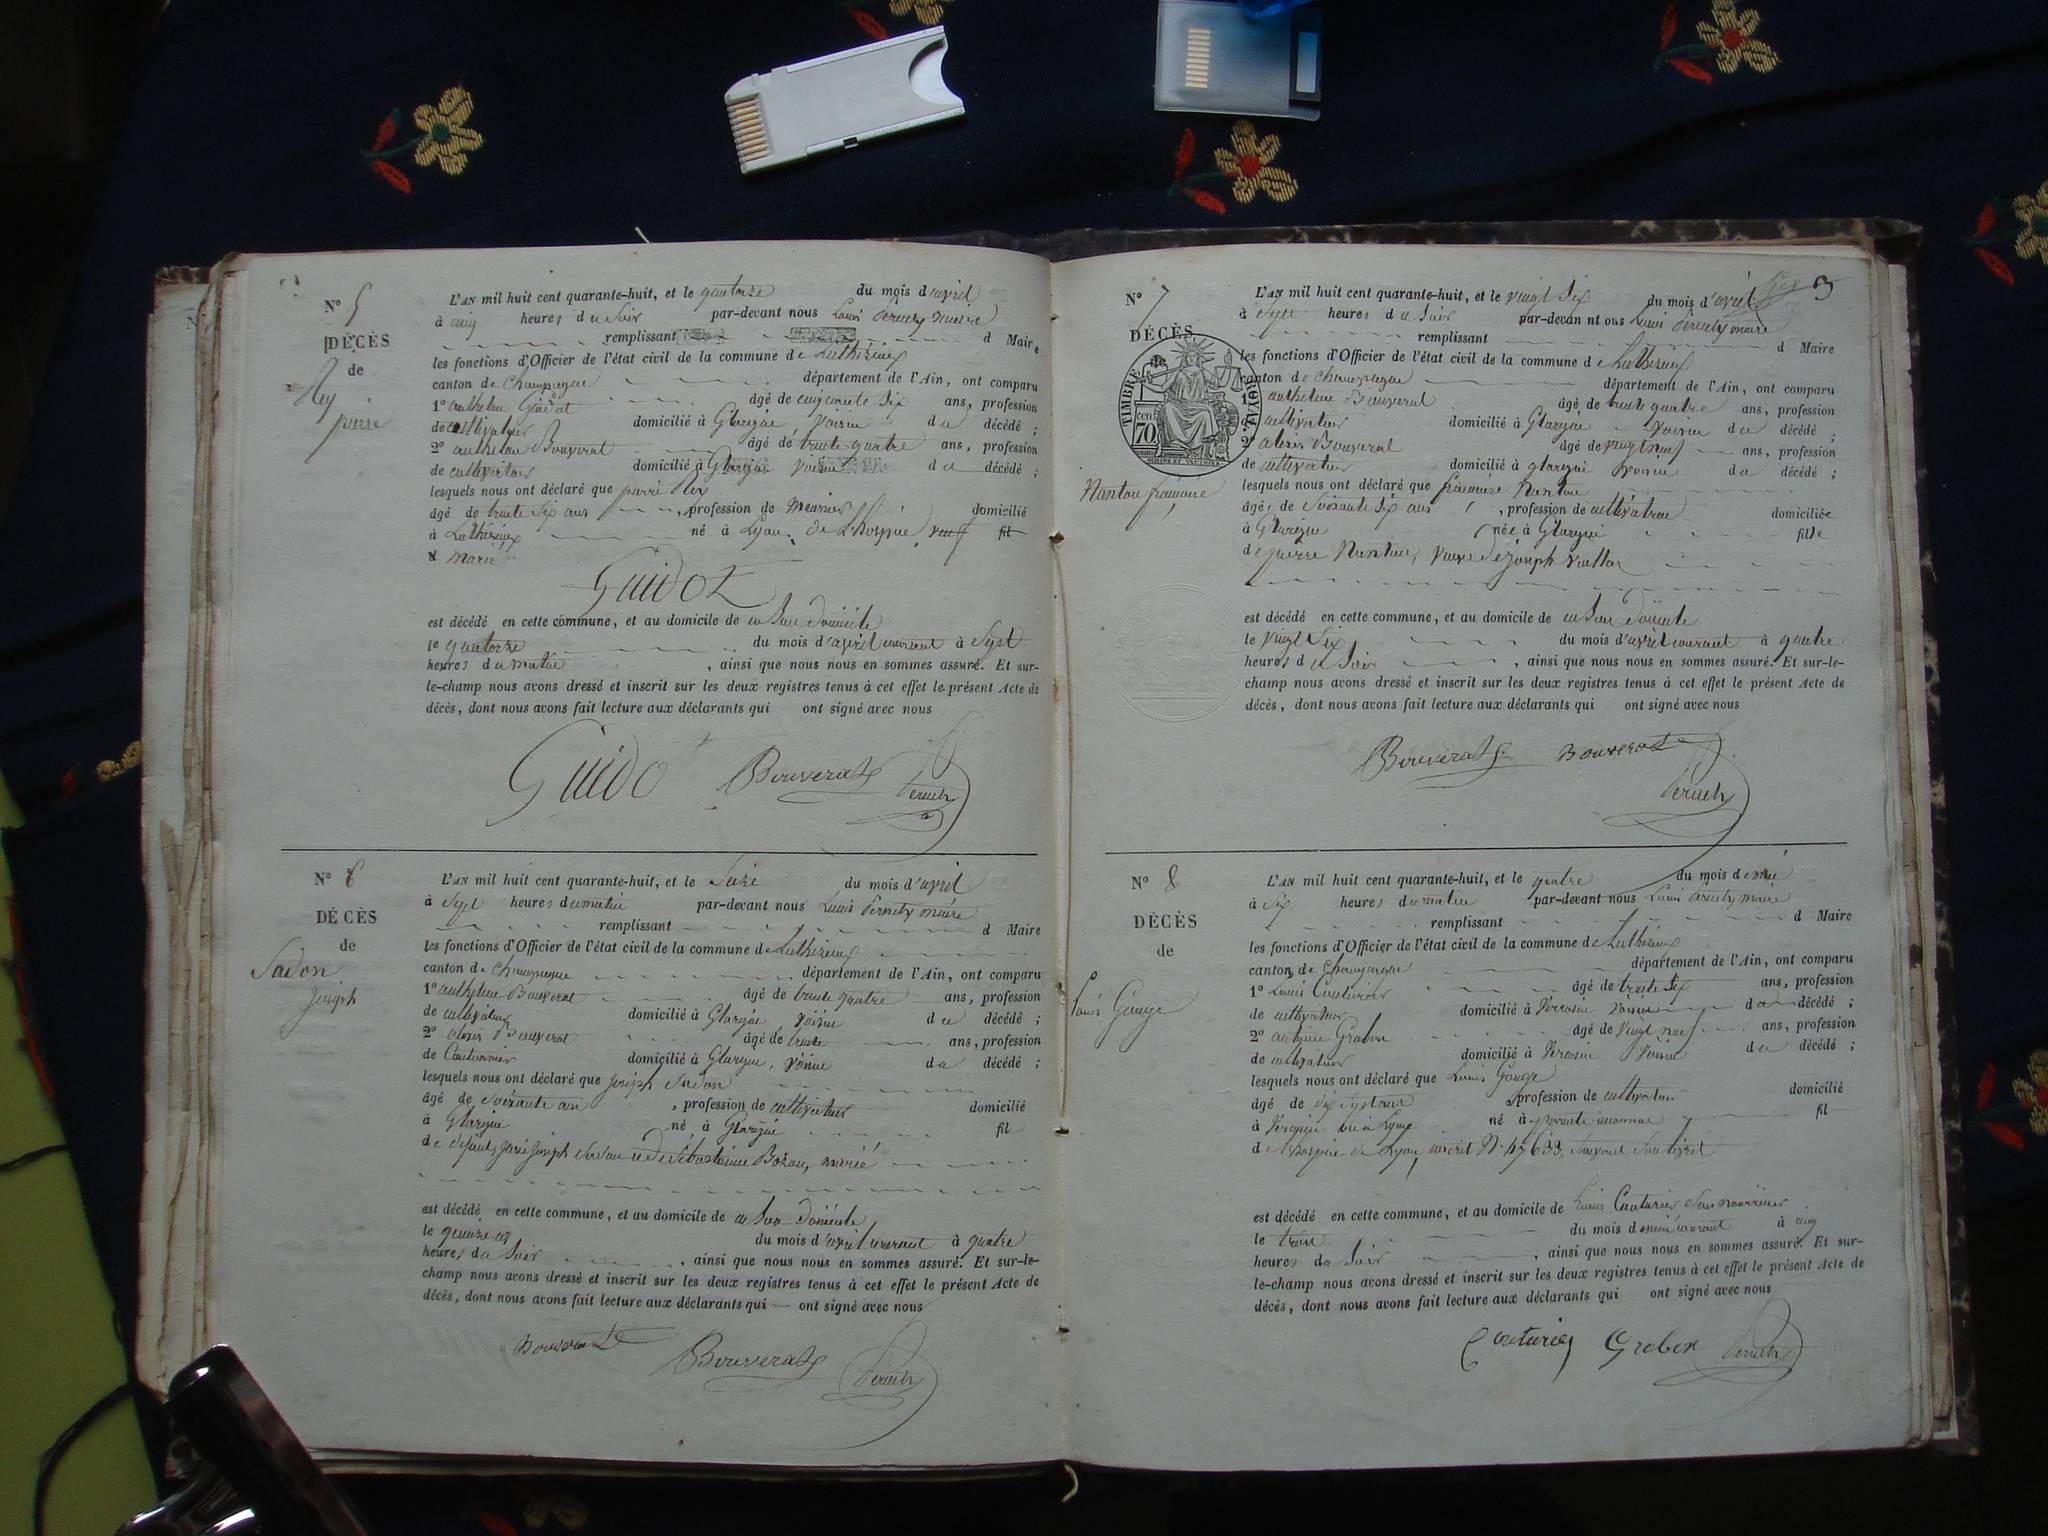 N° 5
DÉCÈS
de
Rey
pierre
L'AN mil huit cent quarante-huit, et le quatorze du mois d'avril
à cinq heures du Soir par-devant nous Louis Pernety maire
remplissant d Maire
les fonctions d'Officier de l'état civil de la commune de Luthézieux
canton de Champagne département de l'Ain, ont comparu
1° anthelme Guidot âgé de cinquante Six ans, profession
de cultivateur domicilié à Glargin, voisin du décédé ;
2° anthelme Bouverat âgé de trente quatre ans, profession
de cultivateur domicilié à Glargin voisin du décédé ;
lesquels nous ont déclaré que pierre Rey
âgé de trente Six ans, profession de Meunier domicilié
à Luthézieux né à Lyon, de L'hospice fil
marié
Guidot
est décédé en cette commune, et au domicile de en Son domicile
le quatorze du mois d'avril courant à Sept
heures du matin, ainsi que nous nous en sommes assuré. Et sur-
le-champ nous avons dressé et inscrit sur les deux registres tenus à cet effet le présent Acte de
décès, dont nous avons fait lecture aux déclarants qui ont signé avec nous
Guidot Bouverat
N° 6
DÉCÈS
de
Sadon
Joseph
L'AN mil huit cent quarante-huit, et le Seize du mois d'avril
à Sept heures du matin par-devant nous Louis Pernety maire
remplissant d Maire
les fonctions d'Officier de l'état civil de la commune de Luthézieux
canton de Champagne département de l'Ain, ont comparu
1° anthelme Bouverat âgé de trente quatre ans, profession
de cultivateur domicilié à Glargin voisin du décédé ;
2° alexis Bouverat âgé de trente ans, profession
de Cantonnier domicilié à Glargin, voisin du décédé ;
lesquels nous ont déclaré que Joseph Sadon
âgé de Soixante ans, profession de cultivateur domicilié
à Glargin né à Glargin fil
de Joseph Sadon et de Sébastienne Bozon, marié
est décédé en cette commune, et au domicile de en Son domicile
le quinze du mois d'avril courant à quatre
heures du Soir, ainsi que nous nous en sommes assuré. Et sur-le-
champ nous avons dressé et inscrit sur les deux registres tenus à cet effet le présent Acte de
décès, dont nous avons fait lecture aux déclarants qui — ont signé avec nous
Bouverat Bouverat
3
N° 7
DÉCÈS
de
TIMBRE ROYAL
70 cen
Nanton françoise
L'AN mil huit cent quarante-huit, et le vingt Six du mois d'avril
à Sept heures du Soir par-devan nt ous Louis Pernety maire
remplissant d Maire
les fonctions d'Officier de l'état civil de la commune de Luthézieux
canton de Champagne département de l'Ain, ont comparu
1° anthelme Bouverat âgé de trente quatre ans, profession
cultivateur domicilié à Glargin voisin du décédé ;
2° alexis Bouverat âgé de vingt neuf ans, profession
de cultivateur domicilié à glargin voisin du décédé ;
lesquels nous ont déclaré que françoise Nanton
âgée de Soixante Six ans, profession de cultivatrice domiciliée
à Glargin née à Glargin fille
de pierre Nanton, veuve de Joseph
est décédé en cette commune, et au domicile de en Son domicile
le vingt Six du mois d'avril courant à quatre
heures du Soir, ainsi que nous nous en sommes assuré. Et sur-le-
champ nous avons dressé et inscrit sur les deux registres tenus à cet effet le présent Acte de
décès, dont nous avons fait lecture aux déclarants qui ont signé avec nous
Bouverat Bouverat
N° 8
DÉCÈS
de
Louis Gouge
L'AN mil huit cent quarante-huit, et le quatre du mois de mai
à Six heures du matin par-devant nous Louis Pernety maire
remplissant d Maire
les fonctions d'Officier de l'état civil de la commune de Luthézieux
canton de Champagne département de l'Ain, ont comparu
1° Louis Couturier âgé de trente Six ans, profession
de cultivateur domicilié à voisin du décédé ;
2° antoine Grobon âgé de vingt neuf ans, profession
de cultivateur domicilié à voisin du décédé ;
lesquels nous ont déclaré que Louis Gouge
âgé de dix Sept ans profession de cultivateur domicilié
à né à fil
de L'hospice de Lyon, inscrit N° 47633, Suivant Son livret
est décédé en cette commune, et au domicile de Louis Couturier Son nourricier
le trois du mois de mai courant à cinq
heures du Soir, ainsi que nous nous en sommes assuré. Et sur-
le-champ nous avons dressé et inscrit sur les deux registres tenus à cet effet le présent Acte de
décès, dont nous avons fait lecture aux déclarants qui ont signé avec nous
Couturier Grobon